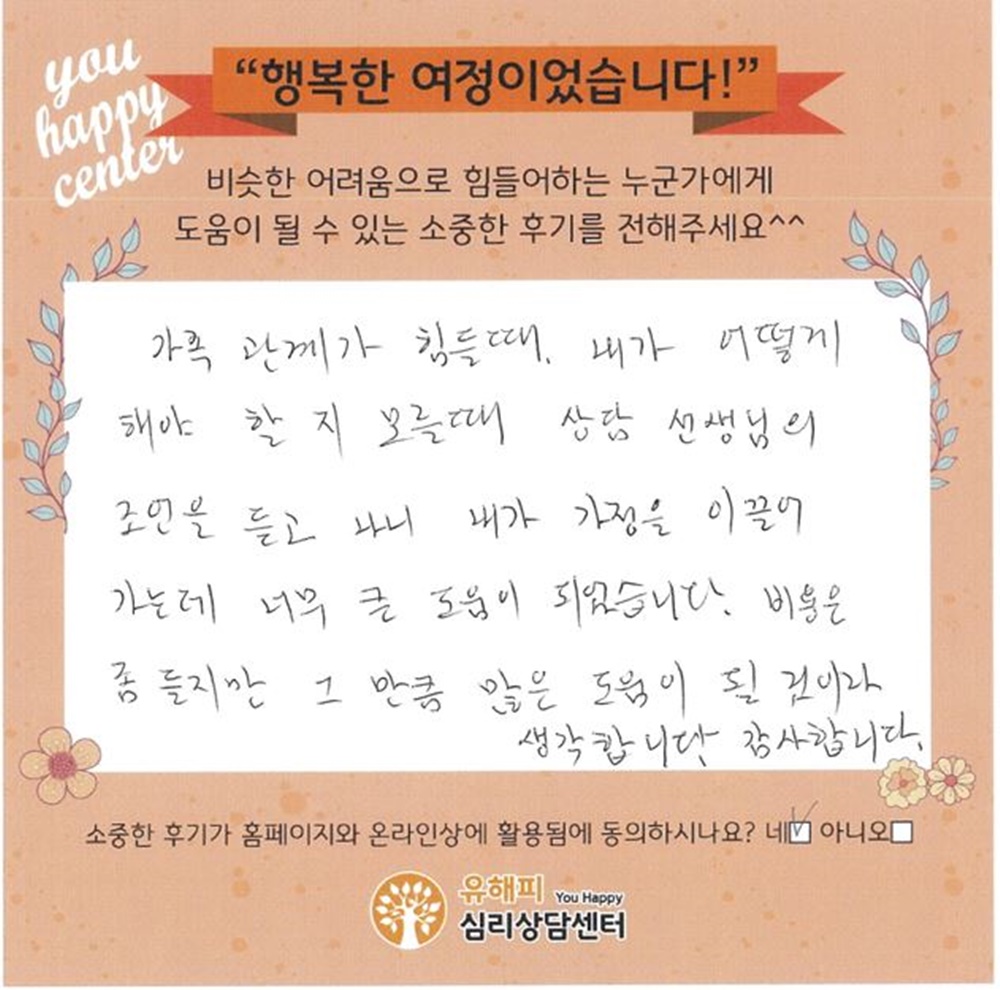 you
happy
center
“행복한 여정이었습니다!”
비슷한 어려움으로 힘들어하는 누군가에게
도움이 될 수 있는 소중한 후기를 전해주세요^^
가족 관계가 힘들때. 내가 어떻게
해야 할 지 모를때 상담 선생님의
조언을 듣고 나니 내가 가정을 이끌어
가는데 너무 큰 도움이 되었습니다. 비용은
좀 들지만 그 만큼 많은 도움이 될 것이라
생각합니다 감사합니다.
소중한 후기가 홈페이지와 온라인상에 활용됨에 동의하시나요? 네☑ 아니오☐
유해피 You Happy
심리상담센터